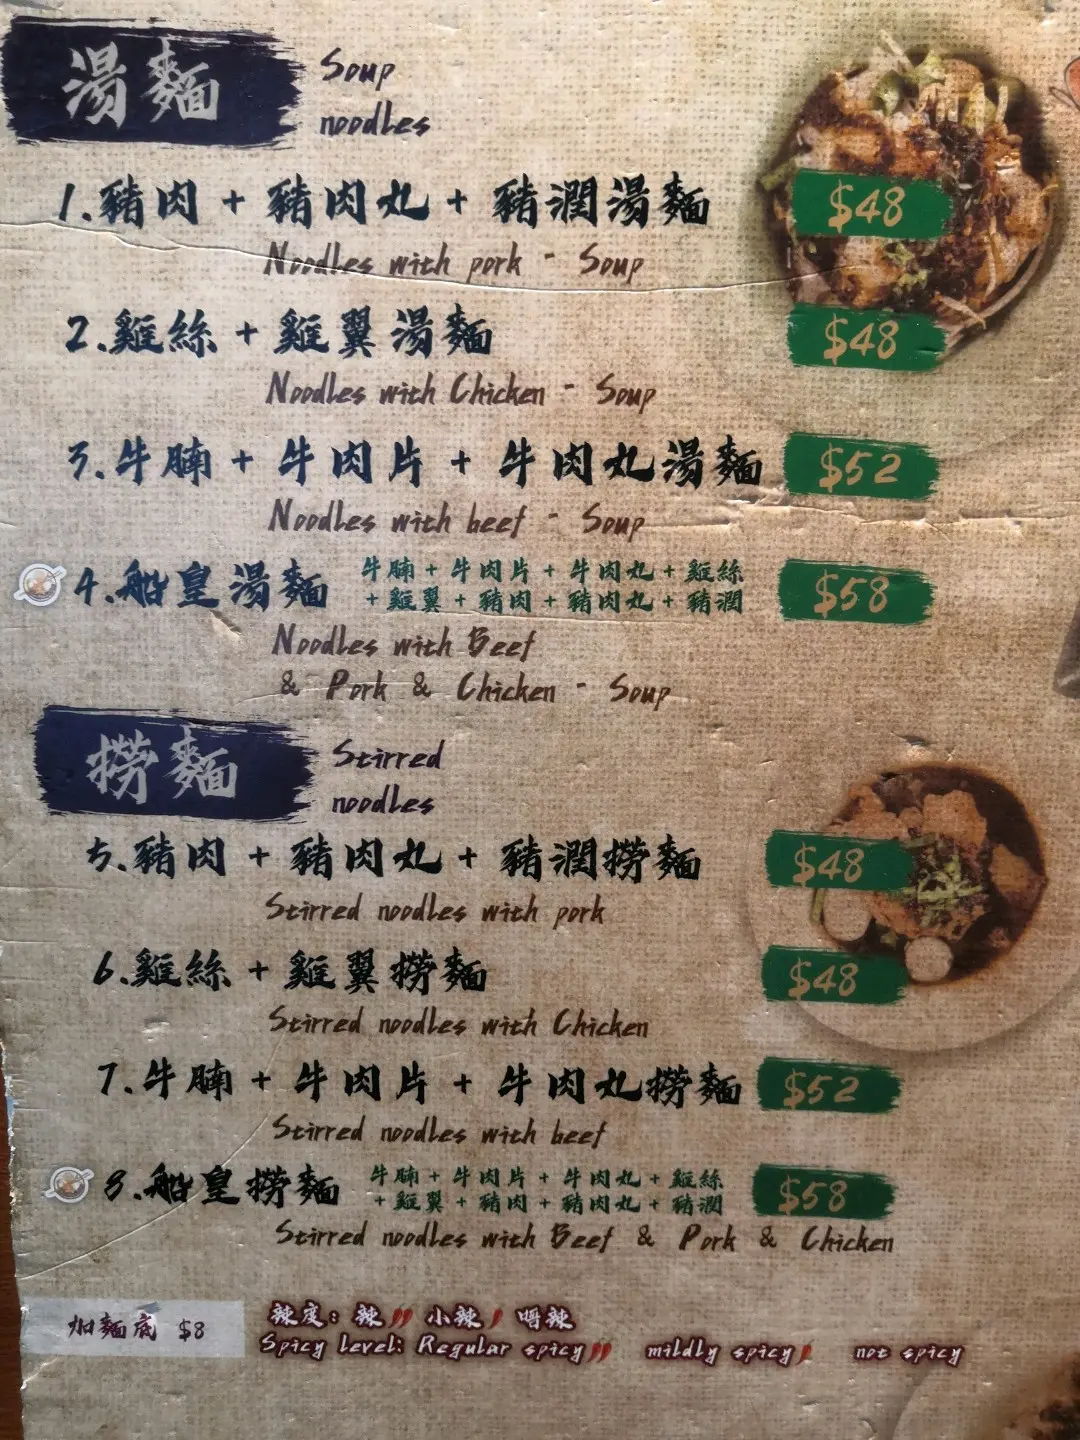 湯麵
Soup
noodles
1.豬肉 + 豬肉丸 + 豬潤湯麵 $48
Noodles with pork - Soup
2.雞絲 + 雞翼湯麵 $48
Noodles with Chicken - Soup
3.牛腩 + 牛肉片 + 牛肉丸湯麵 $52
Noodles with beef - Soup
4.船皇湯麵 牛腩 + 牛肉片 + 牛肉丸 + 雞絲 $58
+ 雞翼 + 豬肉 + 豬肉丸 + 豬潤
Noodles with Beef
& Pork & Chicken - Soup
撈麵
Stirred
noodles
5.豬肉 + 豬肉丸 + 豬潤撈麵 $48
Stirred noodles with pork
6.雞絲 + 雞翼撈麵 $48
Stirred noodles with Chicken
7.牛腩 + 牛肉片 + 牛肉丸撈麵 $52
Stirred noodles with beef
8.船皇撈麵 牛腩 + 牛肉片 + 牛肉丸 + 雞絲 $58
+ 雞翼 + 豬肉 + 豬肉丸 + 豬潤
Stirred noodles with Beef & Pork & Chicken
加麵底 $8
辣度: 辣 小辣 唔辣
Spicy Level: Regular spicy mildly spicy not spicy